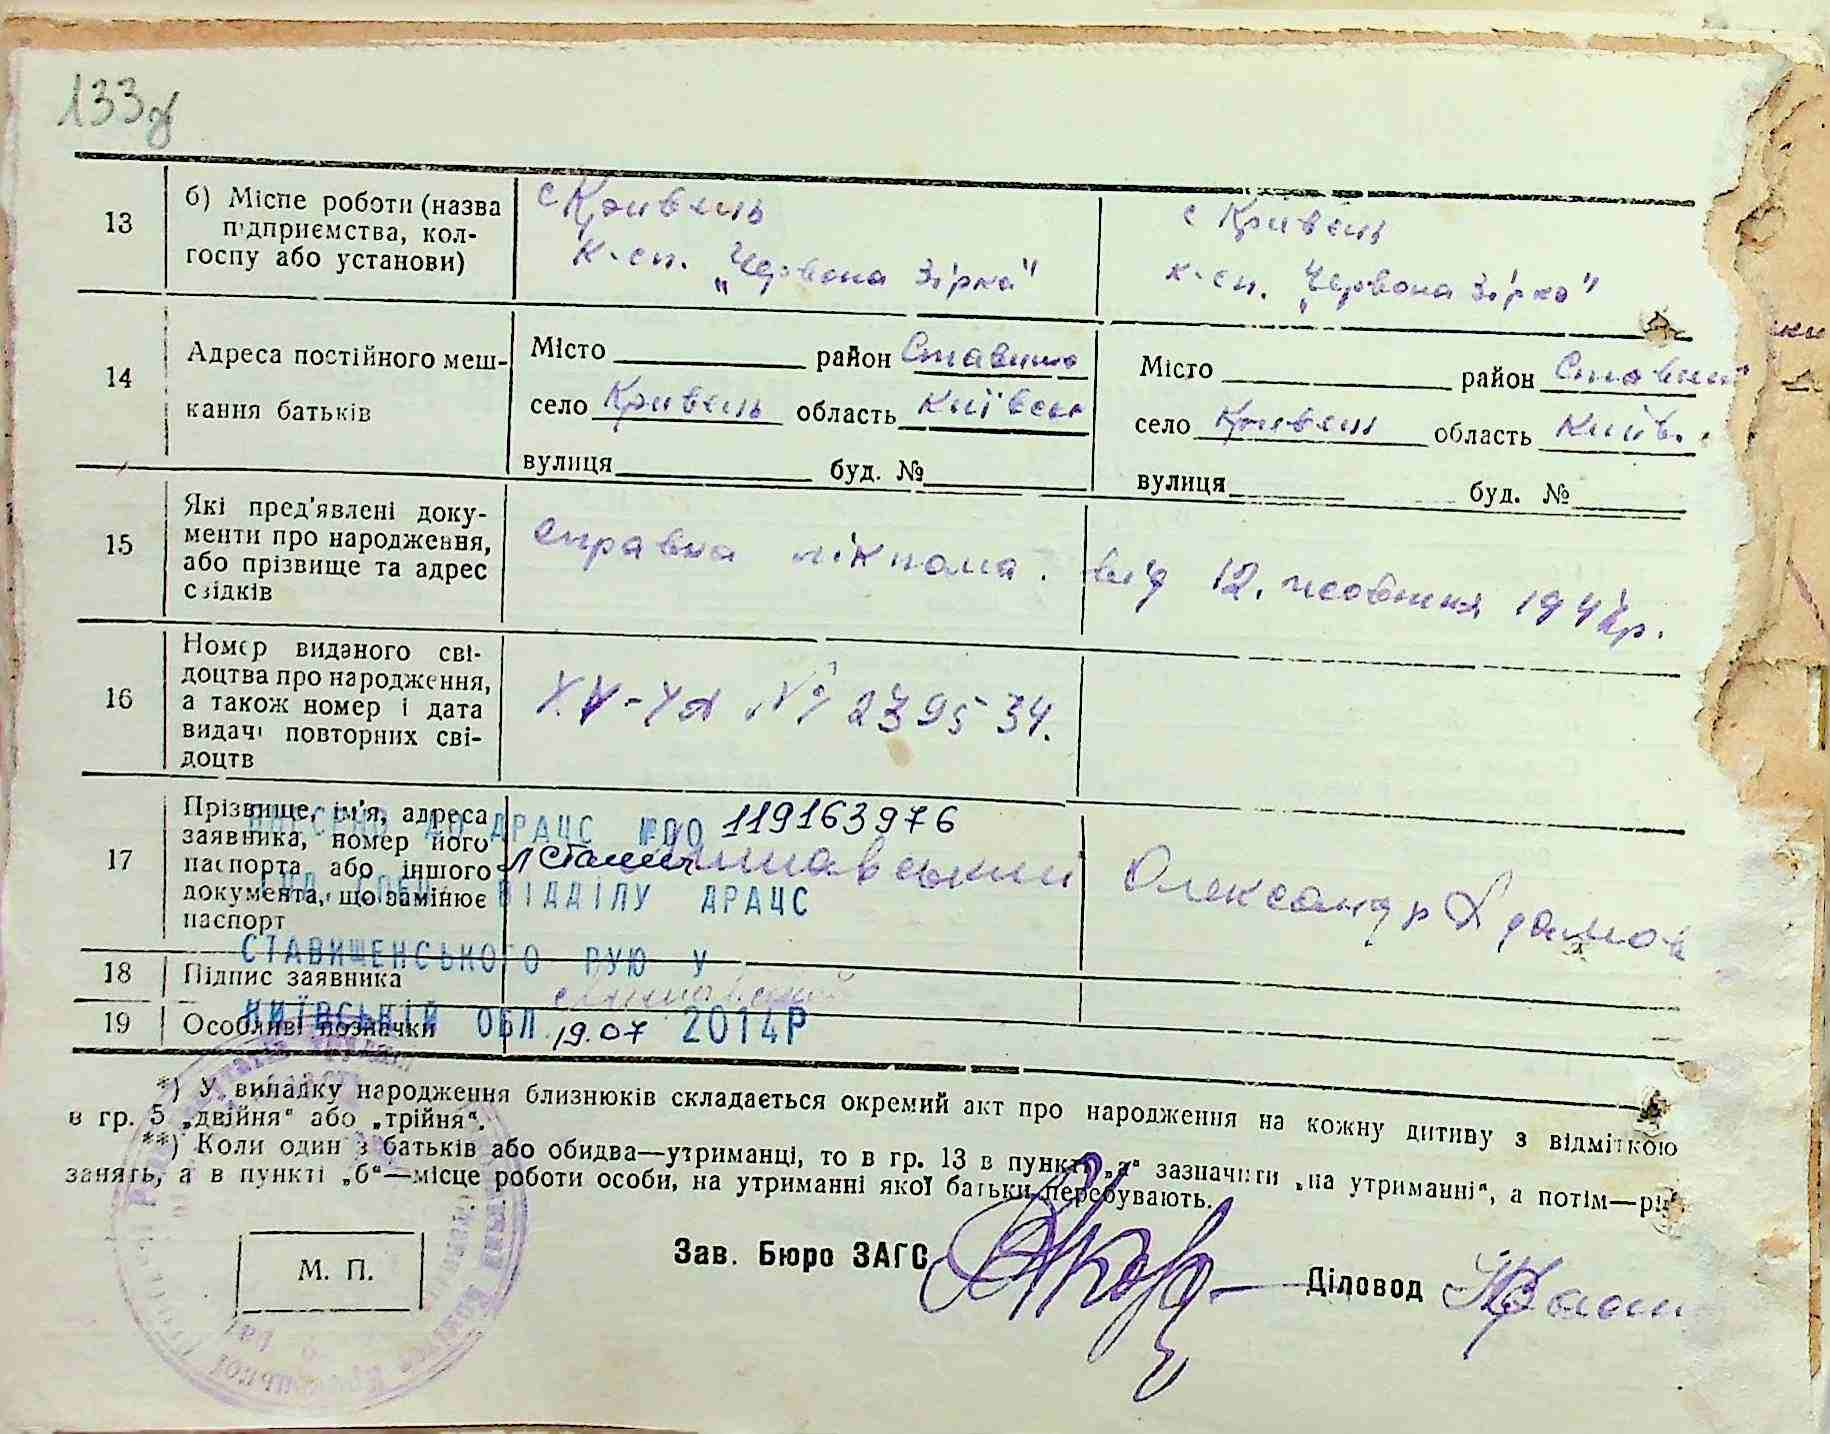 133
13
б) Місце роботи (назва
підприємства, кол-
госпу або установи)
с Кривець
к-сп. „Червона Зірка"
с Кривець
к-сп. „Червона Зірка"
14
Адреса постійного меш-
кання батьків
Місто район Ставище
село Кривець область Київськ
вулиця буд. №
Місто район Ставищ
село Кривець область Київ.
вулиця буд. №
15
Які пред'явлені доку-
менти про народження,
або прізвище та адрес
свідків
справка лікпома. від 12. жовтня 1947р.
16
Номер виданого сві-
доцтва про народження,
а також номер і дата
видачі повторних сві-
доцтв
№ 239534.
17
Прізвище, ім'я, адреса
заявника, номер його
паспорта або іншого
документа, що замінює
паспорт
ДО ДРАЦС 119163976
Олександр Адамов
ВІДДІЛУ ДРАЦС
СТАВИЩЕНСЬКОГО РУЮ У
18
Підпис заявника
КИЇВСЬКІЙ ОБЛ. 19.07 2014Р
19
Особливі позначки
*) У випадку народження близнюків складається окремий акт про народження на кожну дитину з відміткою
в гр. 5 „двійня" або „трійня".
**) Коли один з батьків або обидва—утриманці, то в гр. 13 в пункті „а" зазначити „на утриманні", а потім—рід
занять, а в пункті „б"—місце роботи особи, на утриманні якої батьки перебувають.
М. П.
Зав. Бюро ЗАГС
Діловод